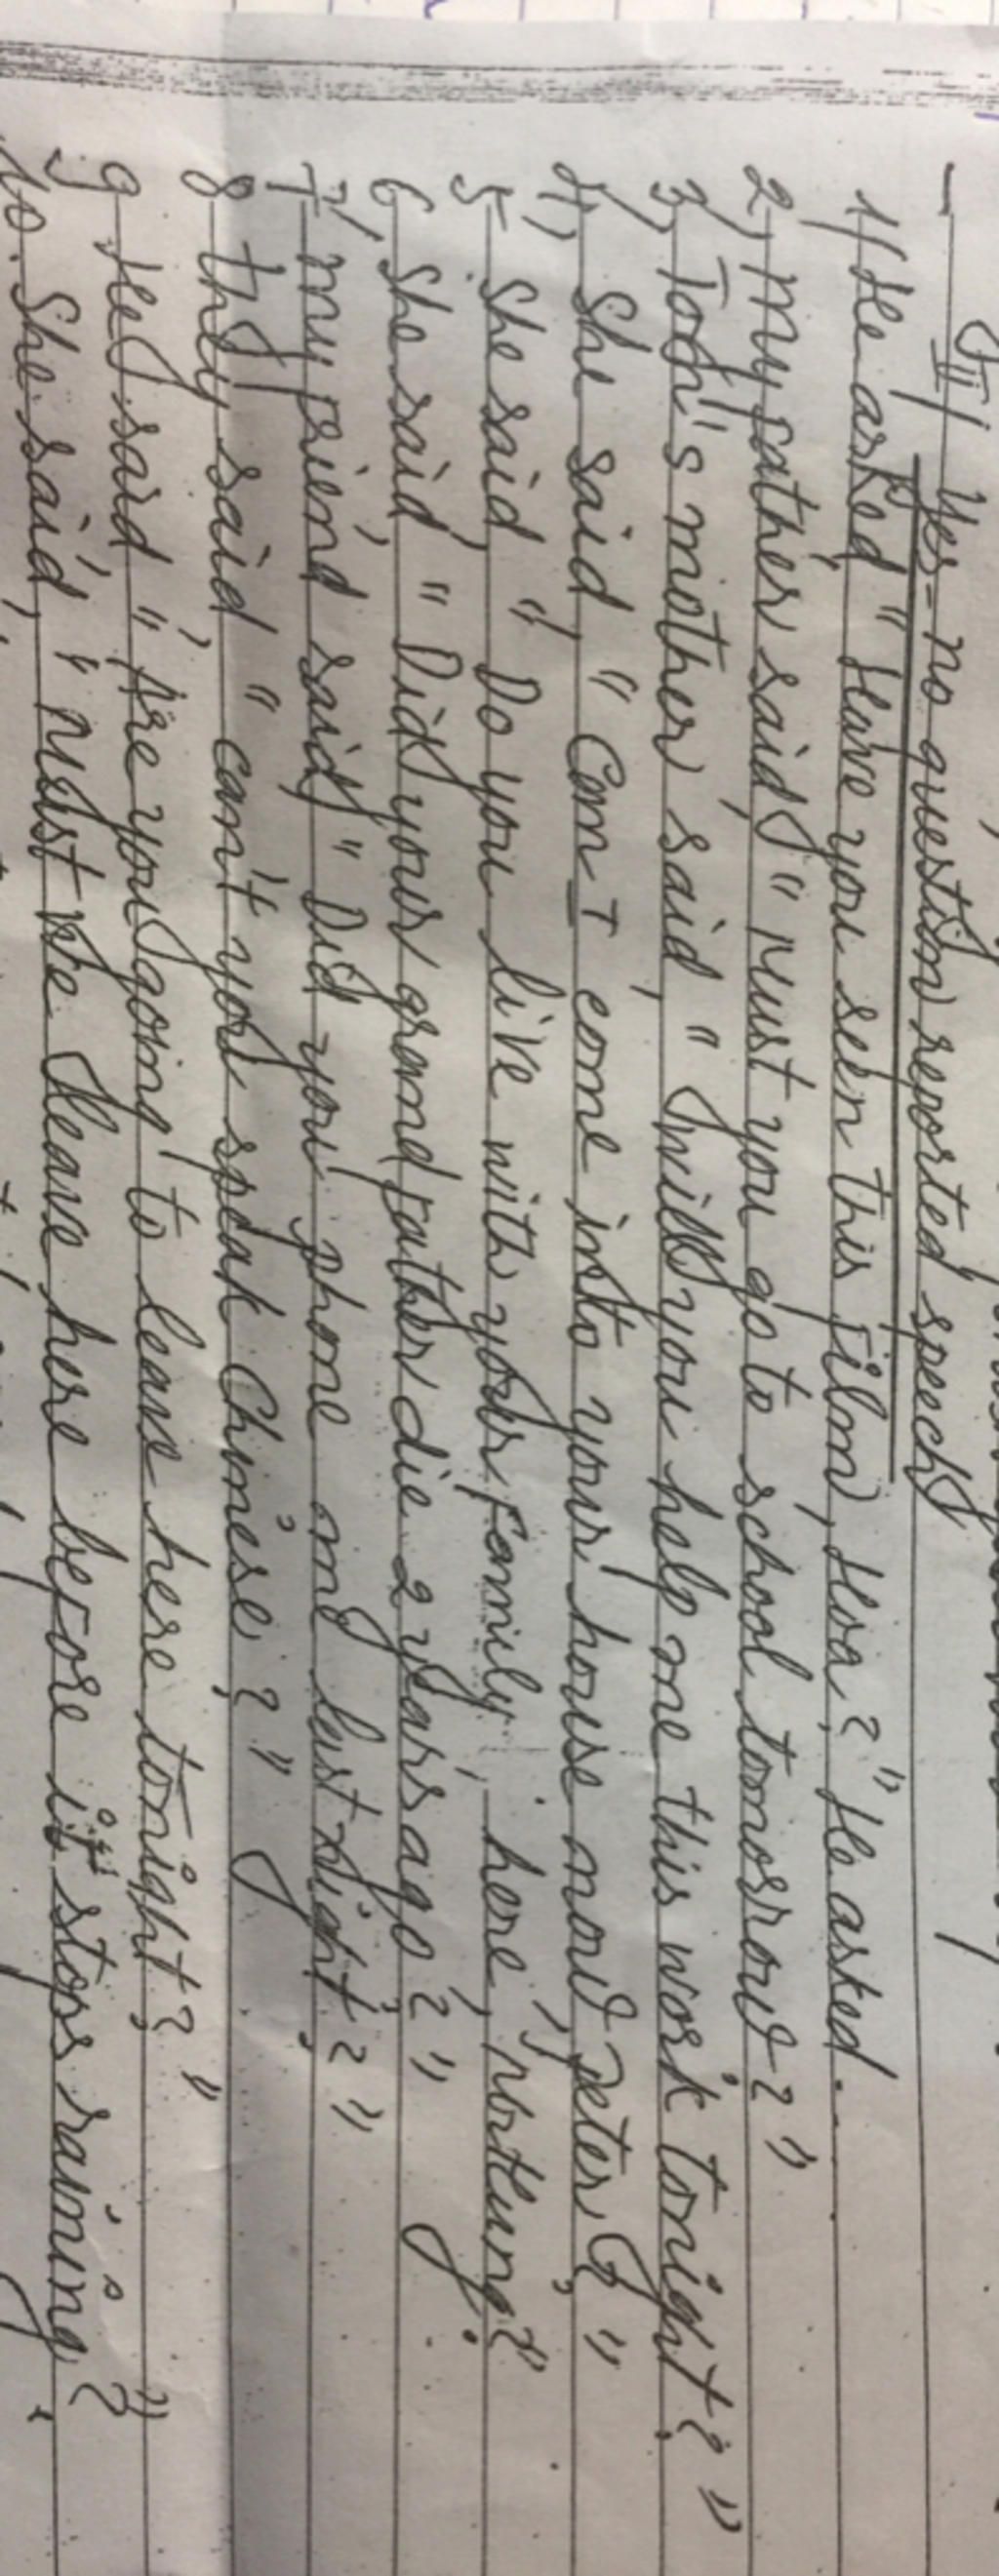 III/ Yes-no question reported speech
1/ He asked "Have you seen this film, Hoa?" He asked.
2, My father said, "Must you go to school tomorrow?"
3, mother said, "will you help me this work tonight?"
4, She said, "Can I come into your house now, Peter?"
5- She said, "Do you live with your family, here,
6, She said, "Did your grandfather die 2 years ago?"
7, My friend said, "Did you phone me last night?"
8- They said, "can't you speak Chinese?"
9- He said, "Are you going to leave here tonight?"
10. She said, "Must we leave here before it stops raining?"